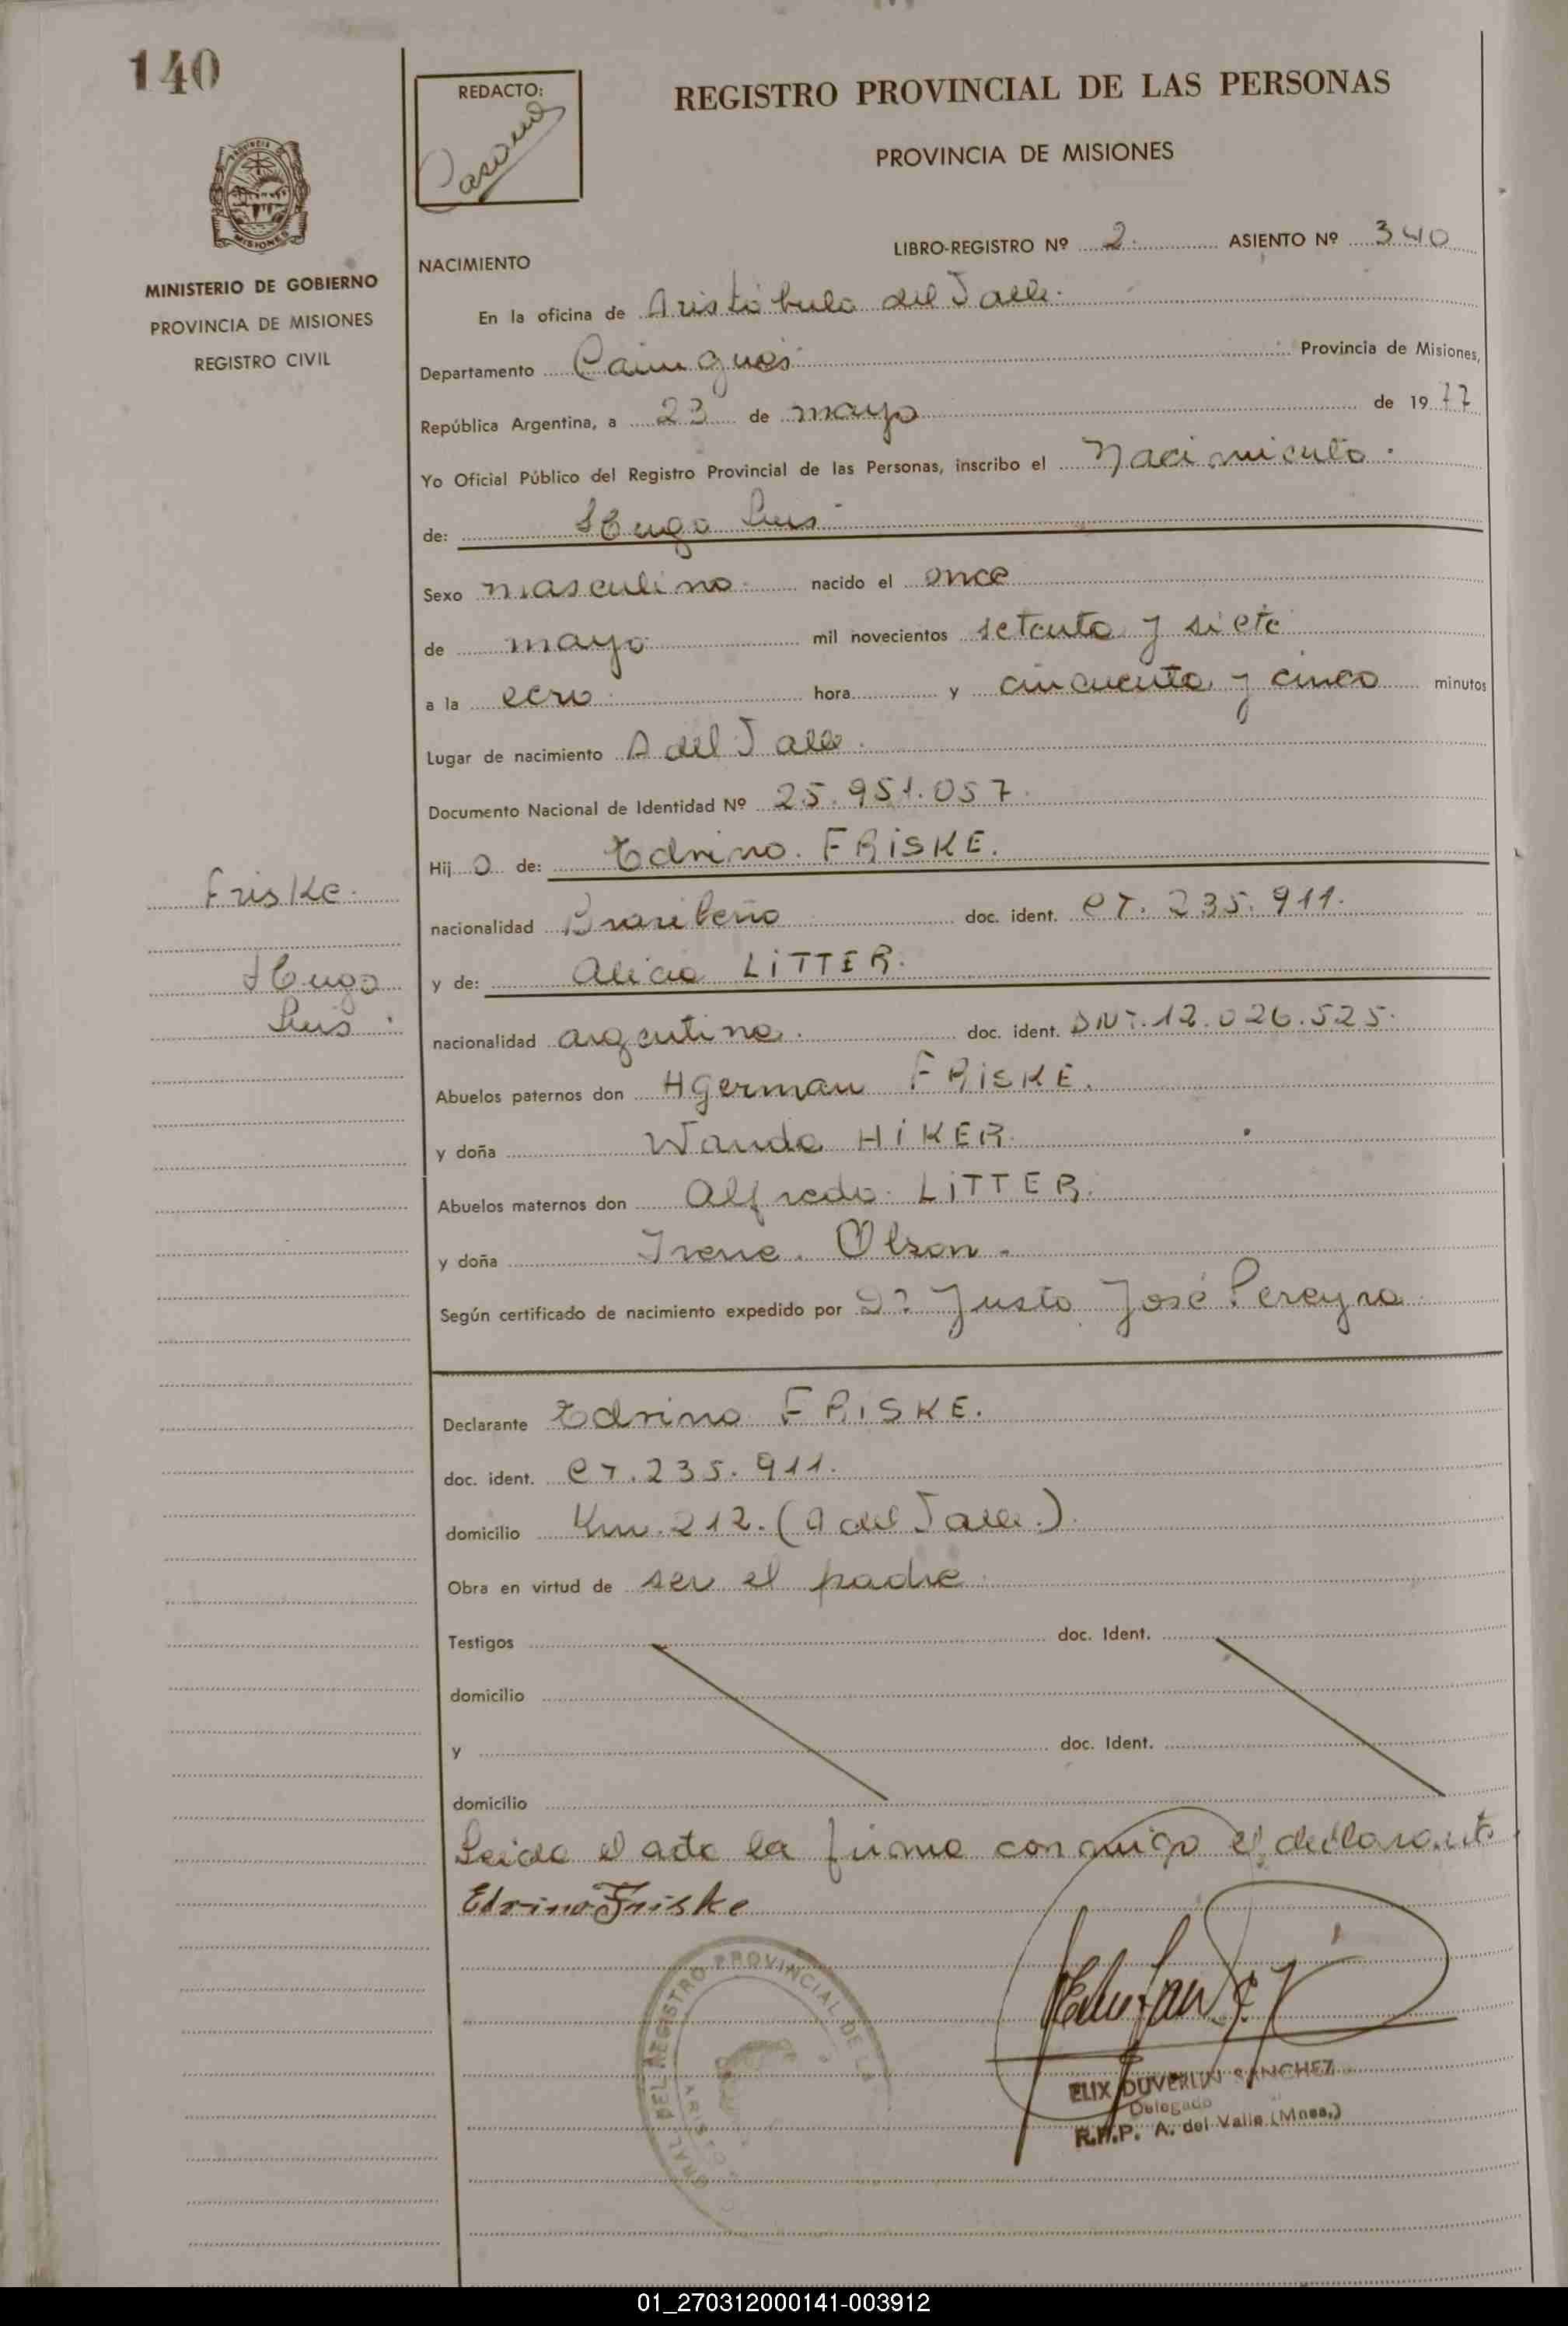 140
REDACTO:
REGISTRO PROVINCIAL DE LAS PERSONAS
PROVINCIA DE MISIONES
PROVINCIA DE
MISIONES
MINISTERIO DE GOBIERNO
PROVINCIA DE MISIONES
REGISTRO CIVIL
LIBRO-REGISTRO Nº 2. ASIENTO Nº 340
NACIMIENTO
En la oficina de Aristóbulo del Valle.
Departamento Cainguás Provincia de Misiones,
República Argentina, a 23 de mayo de 1977
Yo Oficial Público del Registro Provincial de las Personas, inscribo el Nacimiento.
de: Hugo Luis
Sexo masculino nacido el once
de mayo mil novecientos setenta y siete
a la cero hora y cincuenta y cinco minutos
Lugar de nacimiento A del Valle.
Documento Nacional de Identidad Nº 25.951.057.
Hijo de: Edrino. FRiSKE.
nacionalidad Brasileño doc. ident. CI. 235.911.
y de: Alicia LiTTER.
nacionalidad argentina. doc. ident. DNI. 12.026.525.
Abuelos paternos don HGerman FRiSKE.
y doña Wanda HiKER.
Abuelos maternos don Alfredo LiTTER.
y doña Irene. Olson.
Según certificado de nacimiento expedido por Dr. Justo José Pereyra
Friske.
Hugo
Luis.
Declarante Edrino FRiSKE.
doc. ident. CI. 235.911.
domicilio Km. 212. (A del Valle.)
Obra en virtud de ser el padre
Testigos doc. Ident.
domicilio
y doc. Ident.
domicilio
Leida el acta la firma conmigo el declarante
Edrino Friske
DEL REGISTRO PROVINCIAL DE LA
ELIX DUVERLIN SANCHEZ
Delegado
R.P.P. A. del Valle (Mnes.)
01_270312000141-003912